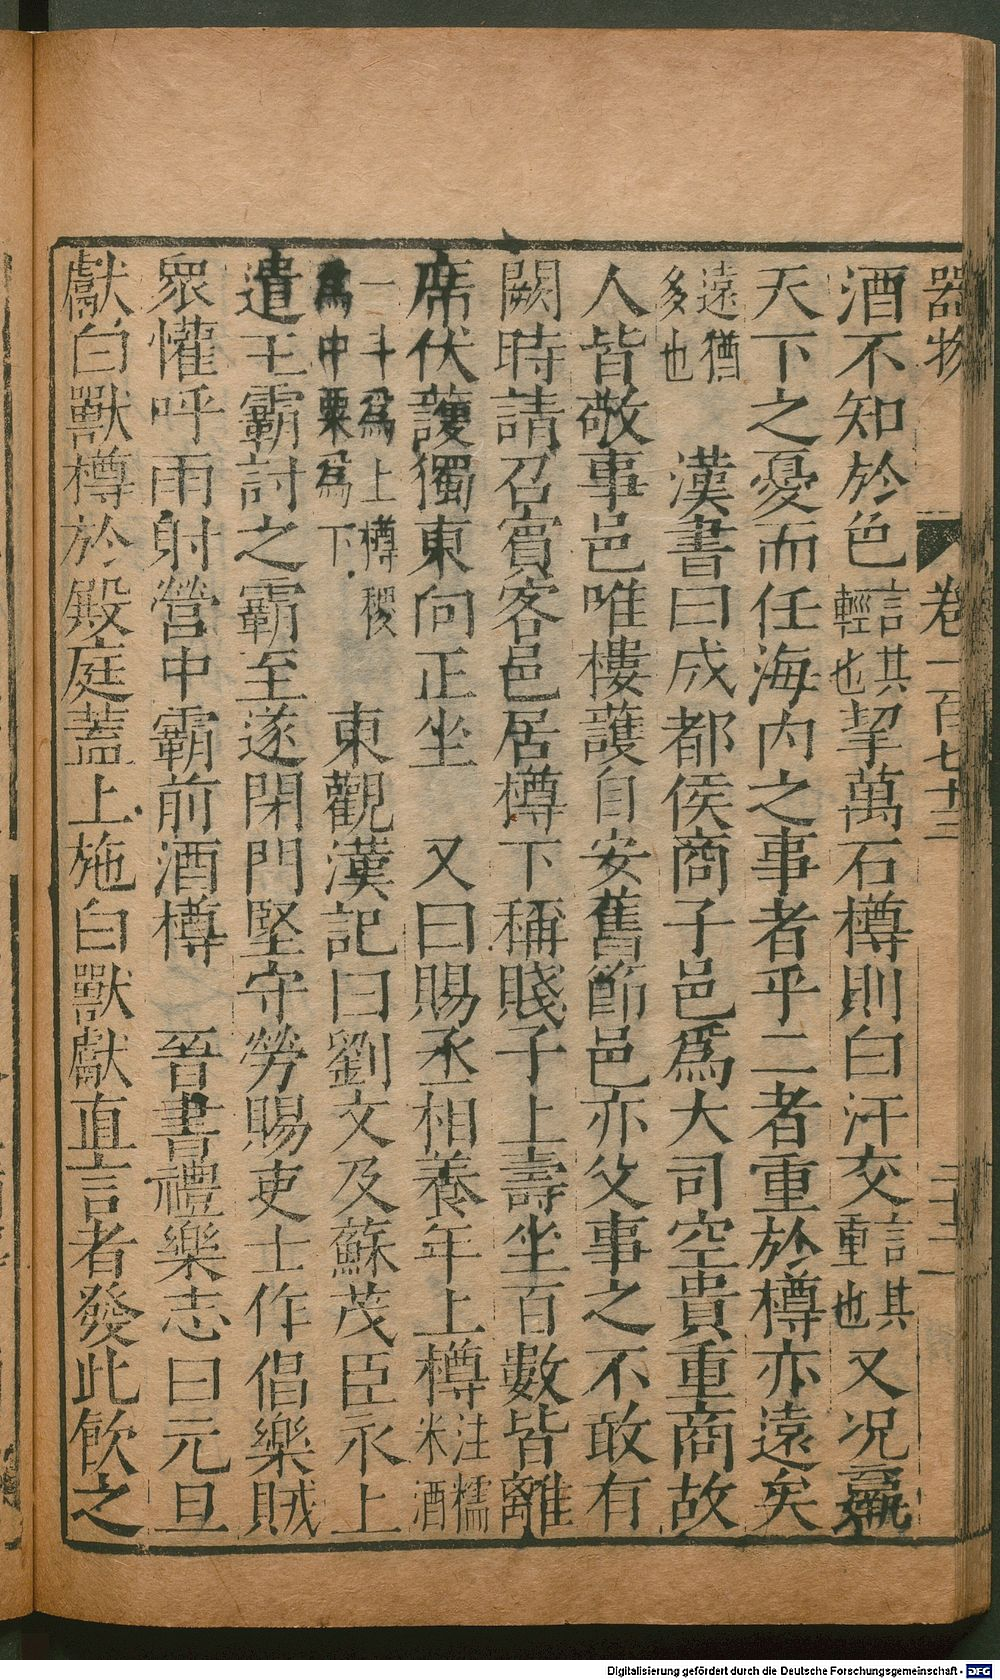 器物 卷一百七十三 二十三
酒不知於色言其輕也挈萬石樽則白汗交言其重也又况羸
天下之憂而任海内之事者乎二者重於樽亦遠矣
遠猶多也 漢書曰成都侯商子邑爲大司空貴重商故
人皆敬事邑唯樓護自安舊節邑亦父事之不敢有
闕時請召賓客邑居樽下稱賤子上壽坐百數皆離
席伏護獨東向正坐 又曰賜丞相養年上樽注糯米酒
一斗爲上樽稷爲中粟爲下 東觀漢記曰劉文及蘇茂臣永上
遣王霸討之霸至遂閉門堅守勞賜吏士作倡樂賊
衆懽呼雨射營中霸前酒樽 晉書禮樂志曰元旦
獻白獸樽於殿庭蓋上施白獸獻直言者發此飲之
Digitalisierung gefördert durch die Deutsche Forschungsgemeinschaft - DFG